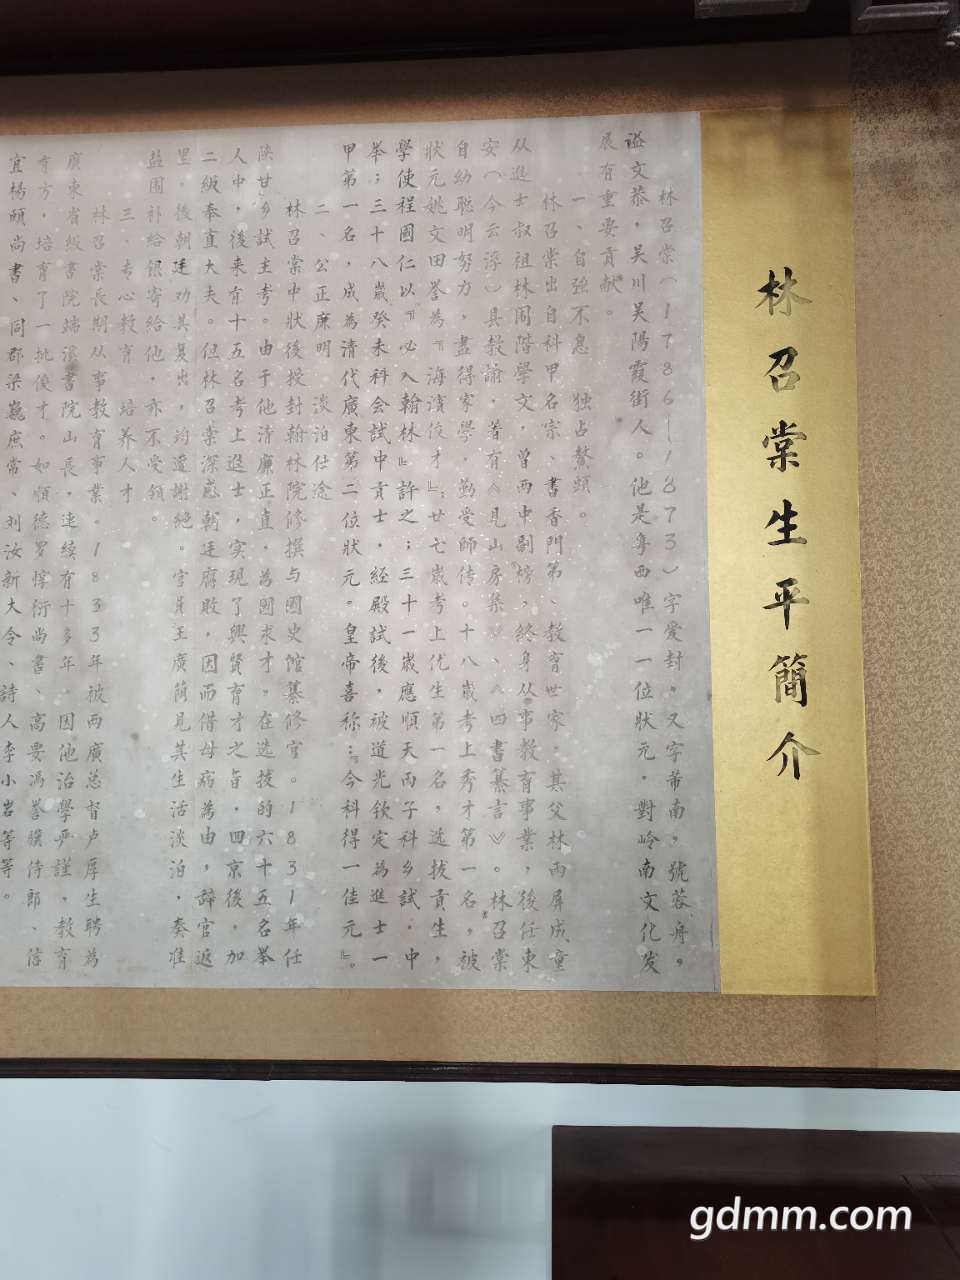 林召棠生平簡介
林召棠(1786—1873)字爱封,又字芾南,號蓉舟,
谥文恭,吴川吴陽霞街人。他是粤西唯一一位状元,對岭南文化发
展有重要貢献。
一、自強不息 独占鰲頭
林召棠出自科甲名宗、書香門第、教育世家,其父林雨屏成童
从進士叔祖林闱階學文,曾两中副榜,終身从事教育事業,後任東
安(今云浮)县教諭,著有《見山房集》、《四書纂言》。林召棠
自幼聪明努力,盡得家學,勤受師传。十八歲考上秀才第一名,被
状元姚文田誉為『海濱俊才』;廿七歲考上优生第一名,选拔貢生,
學使程國仁以『必入翰林』許之;三十一歲應順天丙子科乡試,中
举;三十八歲癸未科会試中貢士,经殿試後,被道光钦定為進士一
甲第一名,成為清代廣東第二位状元。皇帝喜称:『今科得一佳元』。
二、公正廉明 淡泊仕途
林召棠中状後授封翰林院修撰与國史馆纂修官。1831年任
陝甘乡試主考。由于他清廉正直,為國求才。在选拔的六十五名举
人中,後来有十五名考上進士,实現了興賢育才之旨,回京後,加
二級奉直大夫。但林召棠深感朝廷腐敗,因而借母病為由,辞官返
里。後朝廷劝其复出,均遭謝絕。官員王廣蔭見其生活淡泊,奏准
盐围补给银寄给他,亦不受领。
三、专心教育 培养人才
林召棠長期从事教育事業。1833年被两廣总督卢厚生聘為
廣東省級書院端溪書院山長,连续有十多年。因他治學严謹,教育
有方,培育了一批俊才。如順德罗惇衍尚書、高要馮誉驥侍郎、信
宜楊頤尚書、同郡梁巍庶常、刘汝新大令、詩人李小岩等等。
gdmm.com